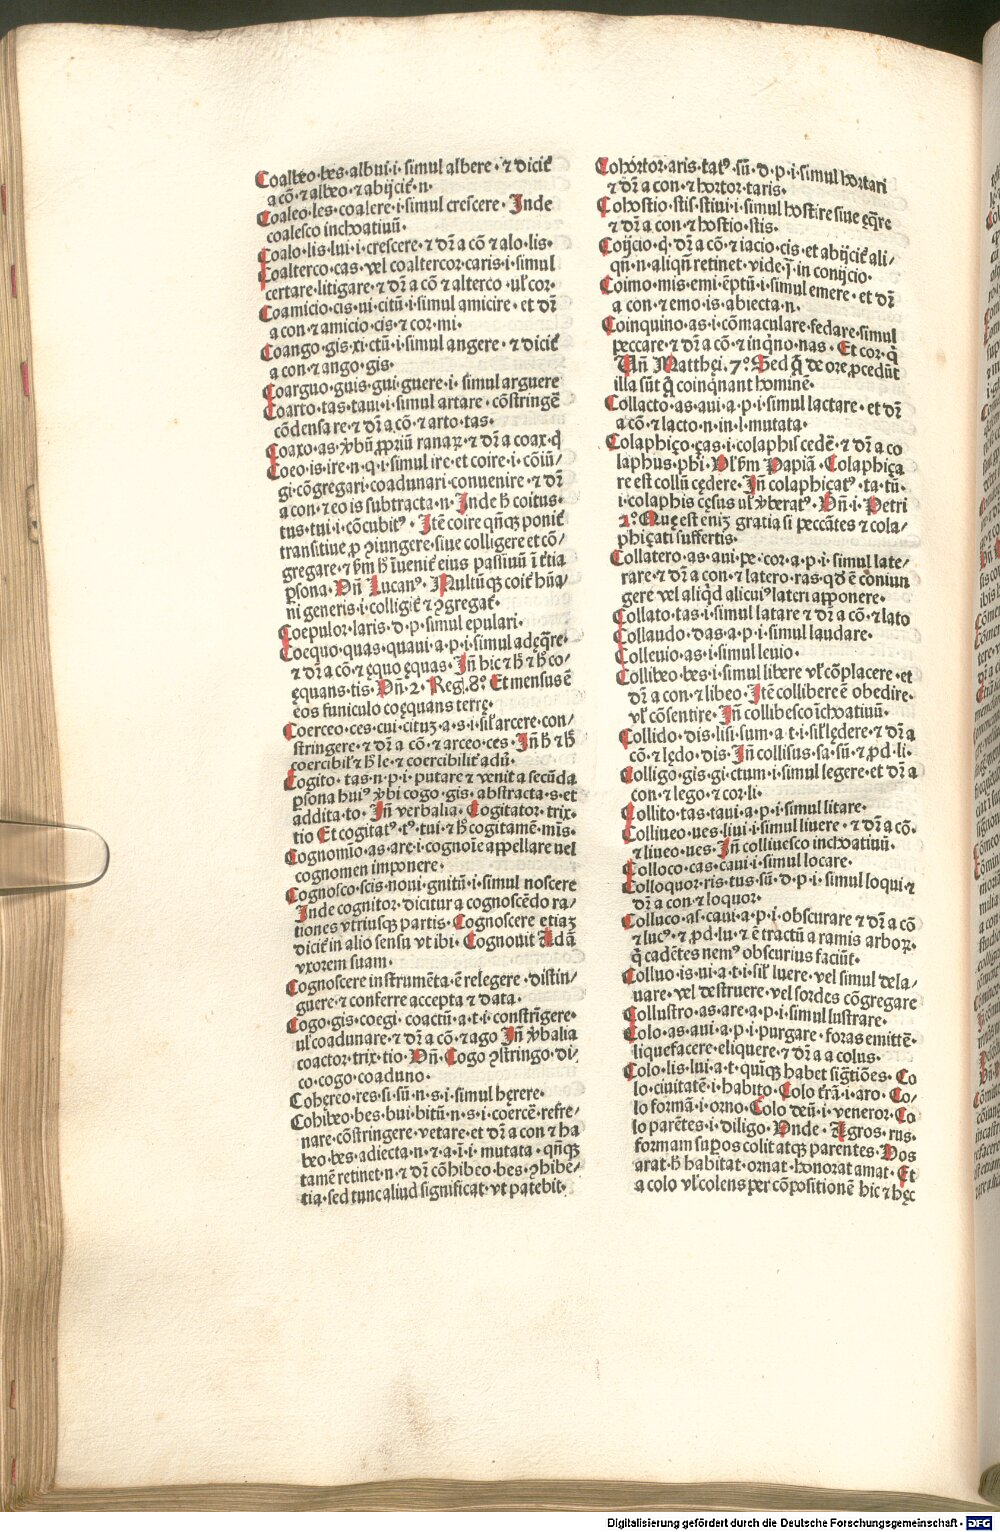 Coalbeo·bes·albui·i·simul albere·⁊ dicit̄
a cō·⁊ albeo·⁊ abijcit̄·n·
Coaleo·les·coalere·i·simul crescere·Inde
coalesco inchoatiuū·
Coalo·lis·lui·i·crescere·⁊ dr̄ a cō ⁊ alo·lis·
Coalterco·cas·vel coaltercor·caris·i·simul
certare·litigare·⁊ dr̄ a cō ⁊ alterco·ul᷑ cor·
Coamicio·cis·ui·citū·i·simul amicire·et dr̄
a con·⁊ amicio·cis·⁊ cor·mi·
Coango·gis·xi·ctū·i·simul angere·⁊ dicit̄
a con·⁊ ango·gis·
Coarguo·guis·gui·guere·i·simul arguere
Coarto·tas·taui·i·simul artare·cōstringe᷑
cōdensare·⁊ dr̄ a cō·⁊ arto·tas·
Coaxo·as·v̄bū ꝓpriū ranaꝝ·⁊ dr̄ a coax·q̇
Coeo·is·ire·n·q·i·simul ire·et coire·i·cōiū/
gi·cōgregari·coadunari·conuenire·⁊ dr̄
a con·⁊ eo is subtracta·n·Inde h̄ coitus·
tus·tui·i·cōcubitꝰ·Itē coire qn̄qꝫ ponit̄
transitiue ꝓ ꝯiungere·siue colligere et cō/
gregare·⁊ ẜm h̄ īuenit̄ eius passiuū ī t̄tia
ꝑsona·Vn̄ Lucanꝰ·Multūqꝫ coit̄ hūa/
ni generis·i·colligit̄ ⁊ ꝯgregat̄·
Coepulor·laris·d·p·simul epulari·
Coequo·quas·quaui·a·p·i·simul adęq̄re·
⁊ dr̄ a cō·⁊ ęquo ęquas·In̄ hic ⁊ h̄ ⁊ h̄ co/
ęquans·tis·Vn̄·2·Reg·8º Et mensus ē
eos funiculo coęquans terrę·
Coerceo·ces·cui·cituꝫ·a·s·i·sil᷑ arcere·con/
stringere·⁊ dr̄ a cō·⁊ arceo·ces·In̄ h̄ ⁊ h̄
coercibil᷑ ⁊ h̄ le·⁊ coercibilit̄ adū·
Cogito·tas·n·p·i·putare ⁊ venit a secūda
ꝑsona huiꝰ v̄bi cogo·gis·abstracta·s·et
addita·to·In̄ verbalia·Cogitator·trix·
tio Et cogitatꝰ·tꝰ·tui·⁊ h̄ cogitamē·mis·
Cognomīo·as·are·i·cognoīe appellare uel
cognomen imponere·
Cognosco·scis·noui·gnitū·i·simul noscere
Inde cognitor·dicitur a cognoscēdo ra/
tiones vtriusqꝫ partis·Cognoscere etiaꝫ
dicit̄ in alio sensu vt ibi·Cognouit Adā
vxorem suam·
Cognoscere instrumēta·ē relegere·distin/
guere·⁊ conferre accepta ⁊ data·
Cogo·gis·coegi·coactū·a·t·i·constrīgere·
ul᷑ coadunare·⁊ dr̄ a cō·⁊ ago In̄ v̄balia
coactor·trix·tio·Vn̄·Cogo ꝯstringo·di/
co·cogo·coaduno·
Cohęreo·res·si·sū·n·s·i·simul hęrere·
Cohibeo·bes·bui·bitū·n·s·i·coercē·refre/
nare·cōstringere·vetare·et dr̄ a con·⁊ ha
beo·bes·adiecta·n·⁊ a·i·i·mutata·qn̄qꝫ
tamē retinet·n·⁊ dr̄ cōhibeo·bes·ꝯhibē/
tia·sed tunc aliud significat·vt patebit·
Cohortor·aris·tatꝰ·sū·d·p·i·simul hortari
⁊ dr̄ a con·⁊ hortor·taris·
Cohostio·stis·stiui·i·simul hostire siue ęq̄re
⁊ dr̄ a con·⁊ hostio·stis·
Coijcio·q̇·dr̄ a cō·⁊ iacio·cis·et abijcit̄ ali/
qn̄·n·aliqn̄ retinet·vide·ī in conijcio·
Coimo·mis·emi·ēptū·i·simul emere·et dr̄
a con·⁊ emo·is·abiecta·n·
Coinquino·as·i·cōmaculare·fedare·simul
peccare·⁊ dr̄ a cō·⁊ inq̇no·nas·Et cor·q̇
Vn̄ Matthei·7º·Sed q̄ de ore ꝓcedūt
illa sūt q̄ coinq̇nant hominē·
Collacto·as·aui·a·p·i·simul lactare·et dr̄
a cō·⁊ lacto·n·in·l·mutata·
Colaphiço·ças·i·colaphis cedē·⁊ dr̄ a co
laphus·phi·Vl᷑ ẜm Papiā·Colaphiça
re est collū cędere·In̄ colaphicatꝰ·ta·tū·
i·colaphis cęsus ul᷑ v̄beratꝰ·Vn̄·i·Petri
2º Que est eniꝫ gratia si peccātes ⁊ cola/
phiçati suffertis·
Collatero·as·aui·pe·cor·a·p·i·simul late/
rare·⁊ dr̄ a con·⁊ latero·ras·qd̄ ē cōniun
gere vel aliq̇d alicuiꝰ lateri apponere·
Collato·tas·i·simul latare ⁊ dr̄ a cō·⁊ lato
Collaudo·das·a·p·i·simul laudare·
Colleuio·as·i·simul leuio·
Collibeo·bes·i·simul libere vl᷑ cōplacere·et
dr̄ a con·⁊ libeo·Itē collibere ē obedire·
vl᷑ cōsentire·In̄ collibesco īchoatiuū·
Collido·dis·lisi·sum·a·t·i·sil᷑ lędere·⁊ dr̄ a
cō·⁊ lędo·dis·In̄ collisus·sa·sū·⁊ ꝓd·li·
Colligo·gis·gi·ctum·i·simul legere·et dr̄ a
con·⁊ lego·⁊ cor·li·
Collito·tas·taui·a·p·i·simul litare·
Colliueo·ues·liui·i·simul liuere·⁊ dr̄ a cō·
⁊ liueo·ues·In̄ colliuesco inchoatiuū·
Colloco·cas·caui·i·simul locare·
Colloquor·ris·tus·sū·d·p·i·simul loqui·⁊
dr̄ a con·⁊ loquor·
Colluco·as·caui·a·p·i·obscurare ⁊ dr̄ a cō
⁊ lucꝰ·⁊ ꝓd·lu·⁊ ē tractū a ramis arboꝝ·
q̇ cadētes nemꝰ obscurius faciūt·
Colluo·is·ui·a·t·i·sil᷑ luere·vel simul dela/
uare·vel destruere·vel sordes cōgregare
Collustro·as·are·a·p·i·simul lustrare·
Colo·as·aui·a·p·i·purgare·foras emittē·
liquefacere·eliquere·⁊ dr̄ a a colus·
Colo·lis·lui·a·t·quīqꝫ habet sig̃tiōes·Co
lo·ciuitatē·i·habito·Colo t̄rā·i·aro·Co/
lo formā·i·orno·Colo deū·i·veneror·Co
lo parētes·i·diligo·Vnde·Agros·rus·
formam suꝑos colit atqꝫ parentes·Vos
arat·h̄ habitat·ornat·honorat amat·Et
a colo vl᷑ colens per cōpositionē hic ⁊ hęc
Digitalisierung gefördert durch die Deutsche Forschungsgemeinschaft - DFG